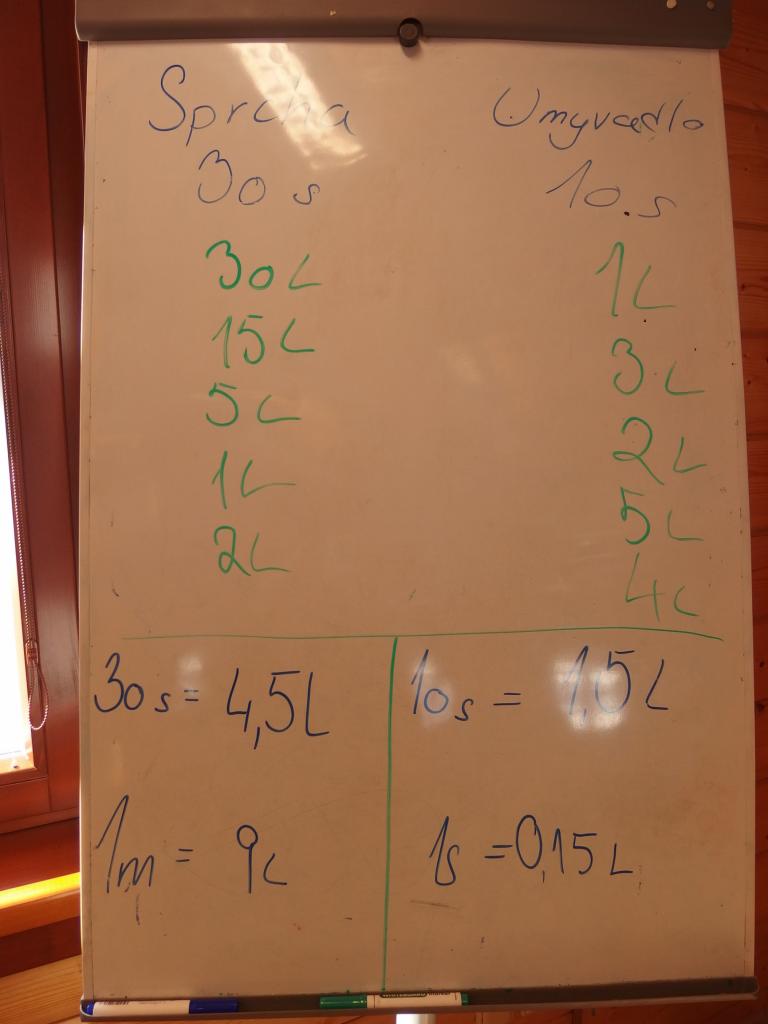 Sprcha
30 s
30 L
15 L
5 L
1 L
2 L
Umyvadlo
10.s
1 L
3 L
2 L
5 L
4 L
30 s = 4,5 L
1m = 9 L
10 s = 1,5 L
1s = 0,15 L